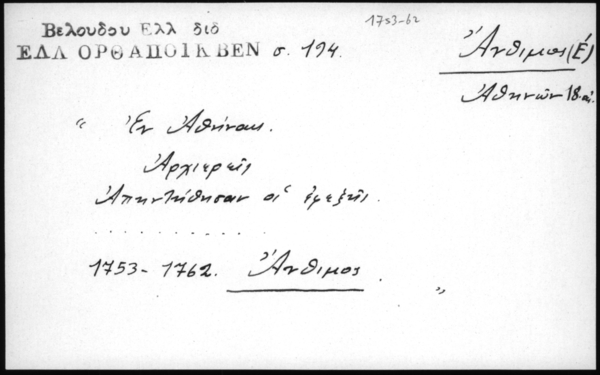 1753-62
Βελουδου Ελλ διδ
ΕΛΛ ΟΡΘ ΑΠΟΙΚ ΒΕΝ σ. 194.
Ἄνθιμος (Ε΄)
Ἀθηνῶν 18 αἰ.
" Ἐν Ἀθήναις.
Ἀρχιερεῖς
Ἀπηντήθησαν οἱ ἐφεξῆς.
. . . . . . . . . . . .
1753-1762. Ἄνθιμος. "